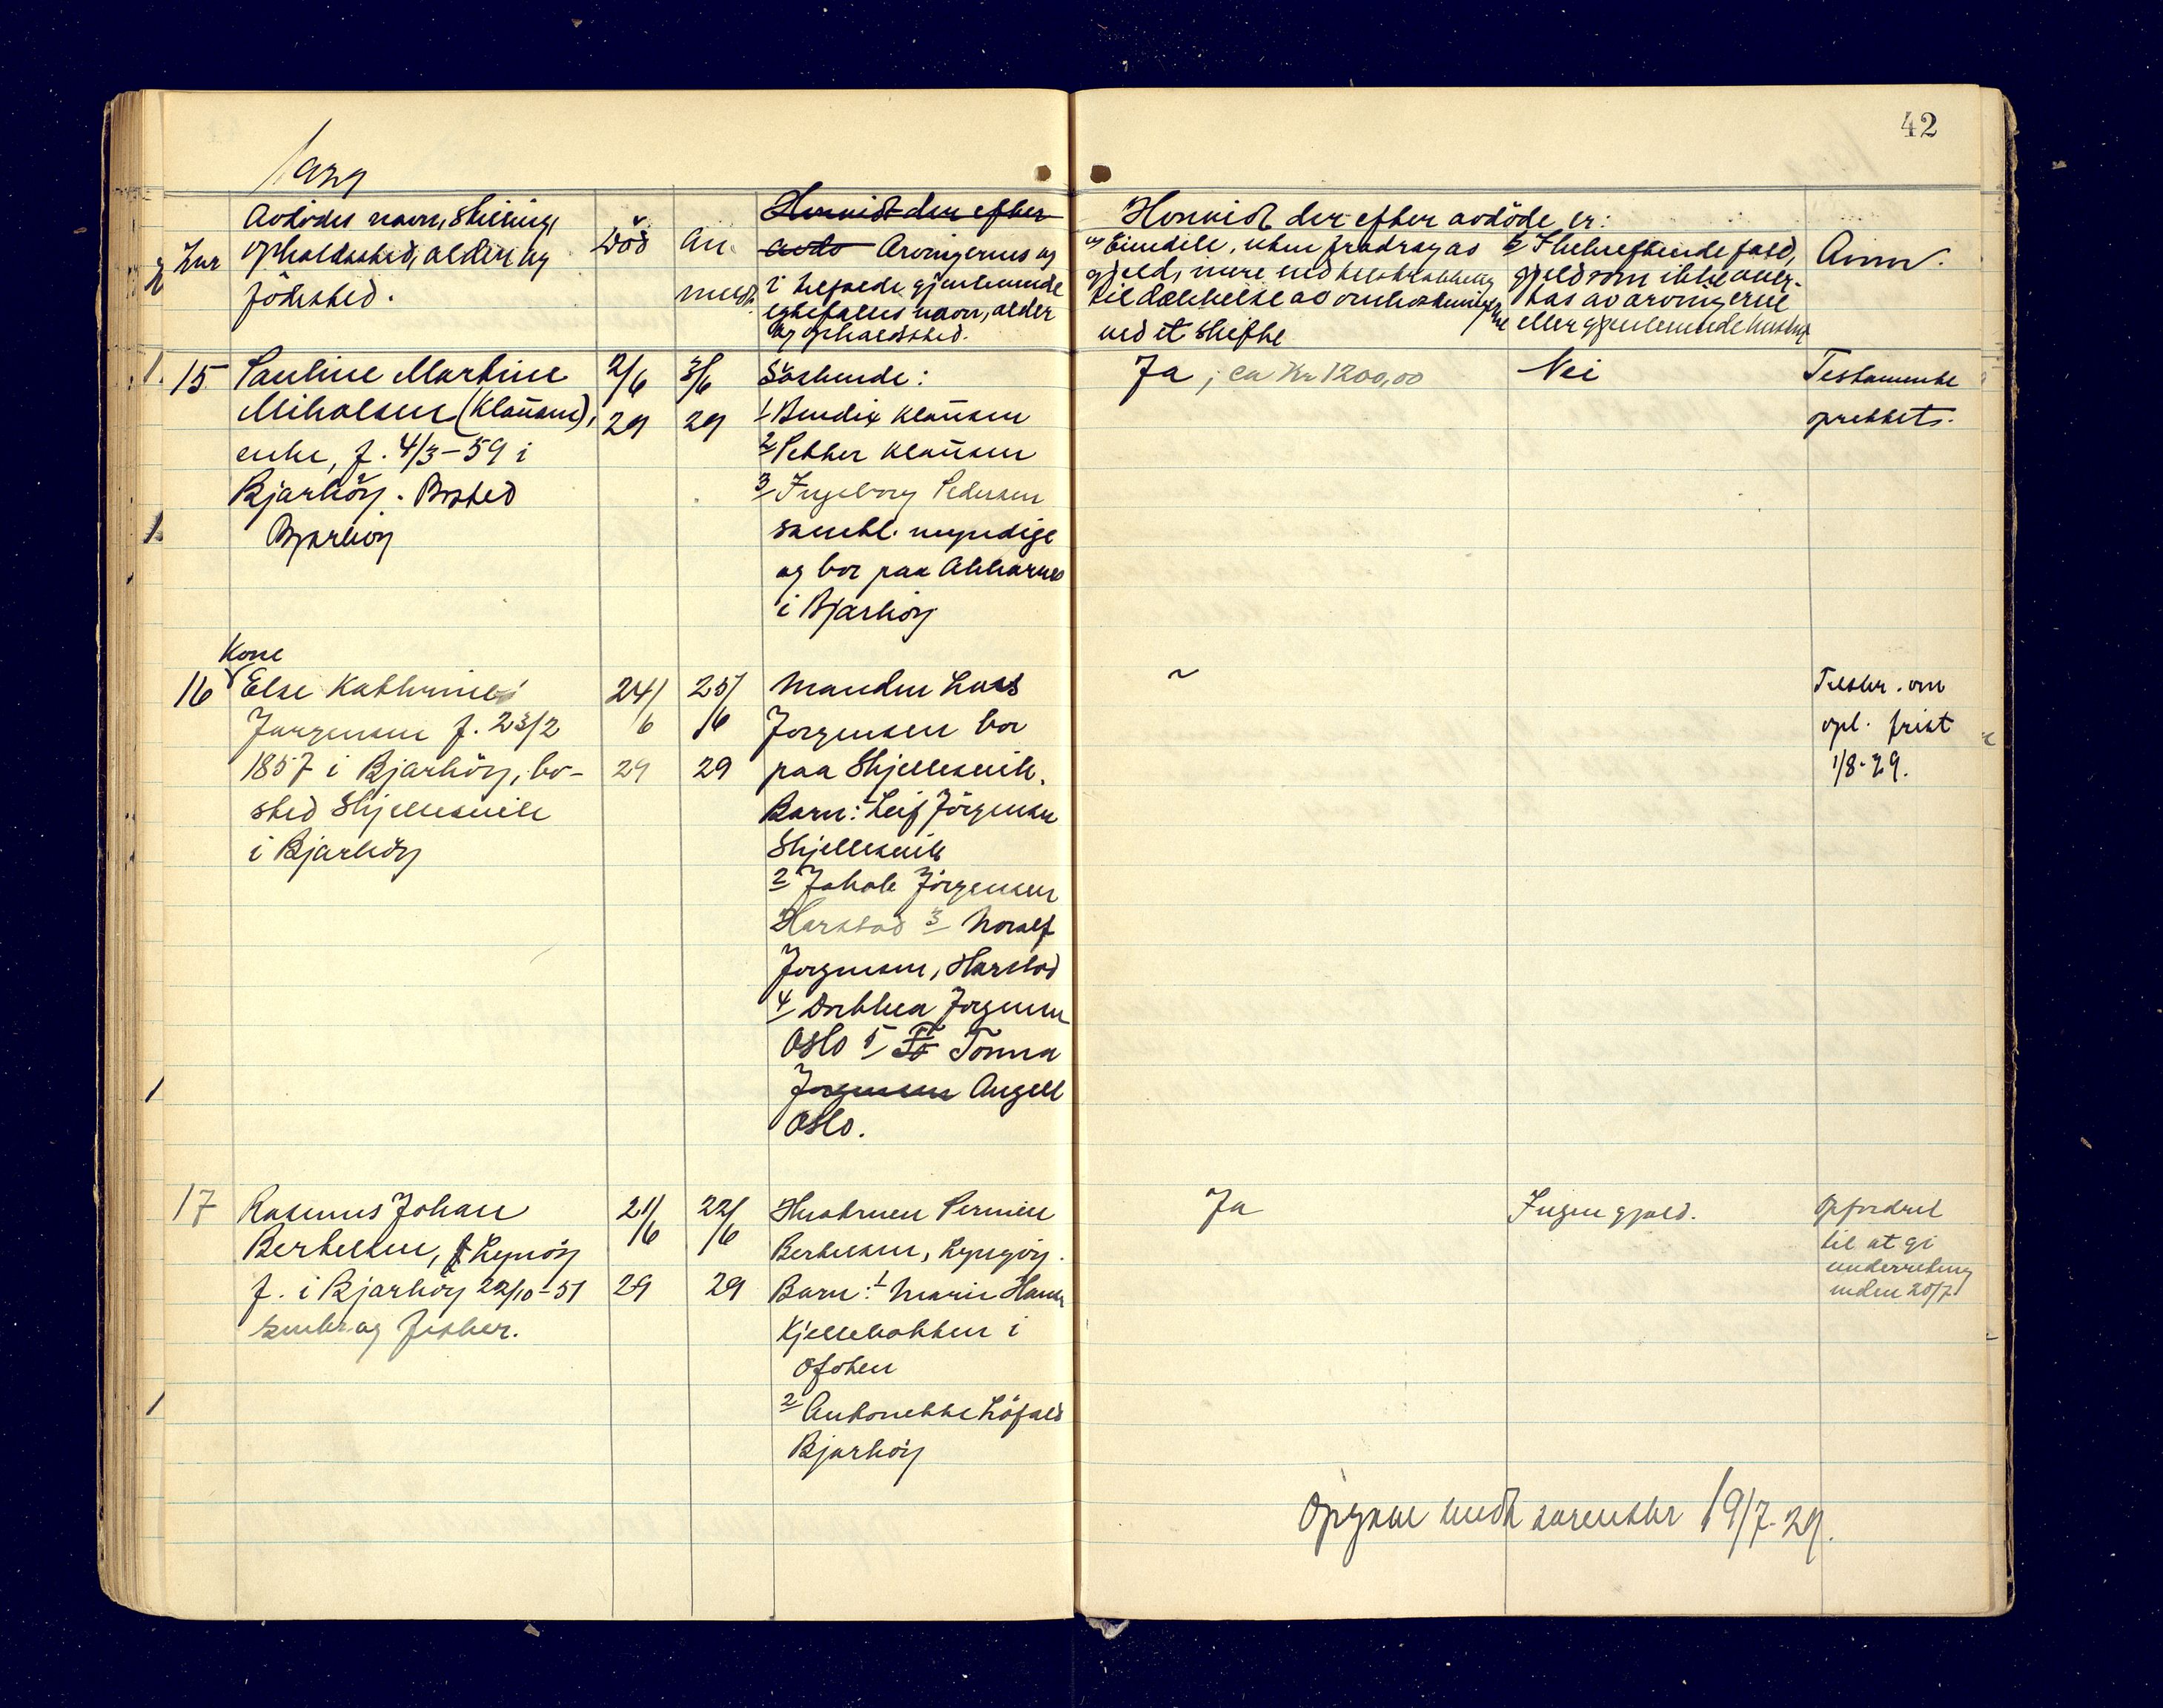 42
1929
Lnr
Avdødes navn, stilling,
opholdssted, alder og
fødested.
Död
An
meldt.
Hvorvidt der efter
avdö Arvingernes og
i tilfælde gjenlevende
egtefælles navn, alder
og opholdssted.
Hvorvidt der efter avdöde er:
a) Eiendele, uten fradrag av
gjeld, mere end
til dækkelse av omkostningene
ved et skifte
b) I tilfælde,
gjeld som ikke over-
tas av arvingerne
eller gjenlevende
Anm.
15
Pauline Martine
Mikalsen (Klaüsen),
enke, f. 4/3-59 i
Bjarköy. Bosted
Bjarköy
2/6
29
3/6
29
Söskende:
1 Bendix Klaüsen
2 Petter Klaüsen
3 Ingeborg Pedersen
samtl. myndige
og bor paa Akkarnes
i Bjarköy
Ja, ca Kr 1200,00
Nei
Testamente
oprettet.
Kone
16
Else Kathrine
Jørgensen f. 23/2
1857 i Bjarköy, bo-
sted Skjellesvik
i Bjarköy
24/
6
29
25/
6
29
Manden Lars
Jorgensen bor
paa Skjellesvik.
Barn: 1 Leif Jörgensen
Skjellesvik
2 Jakob Jörgensen
Harstad 3 Noralf
Jorgensen, Harstad
4 Dorthea Jorgensen
Oslo 5 To Tonna
Jorgensen Angell
Oslo.
~
Tilskr. om
opl. frist
1/8-29.
17
Rasmus Johan
Bertelsen, Lyngöy
f. i Bjarköy 22/10-51
enke og fisker.
21/
6
29
22/
6
29
Hustruen Pernille
Bertelsen, Lyngöy.
Barn: 1 Marie Hansen
Kjellebakken i
Ofoten
2 Antonette Löfald
Bjarköy
Ja
Ingen gjæld.
Opfordret
til at gi
underretning
inden 20/7
Opgave sendt sorenskr 19/7-29.